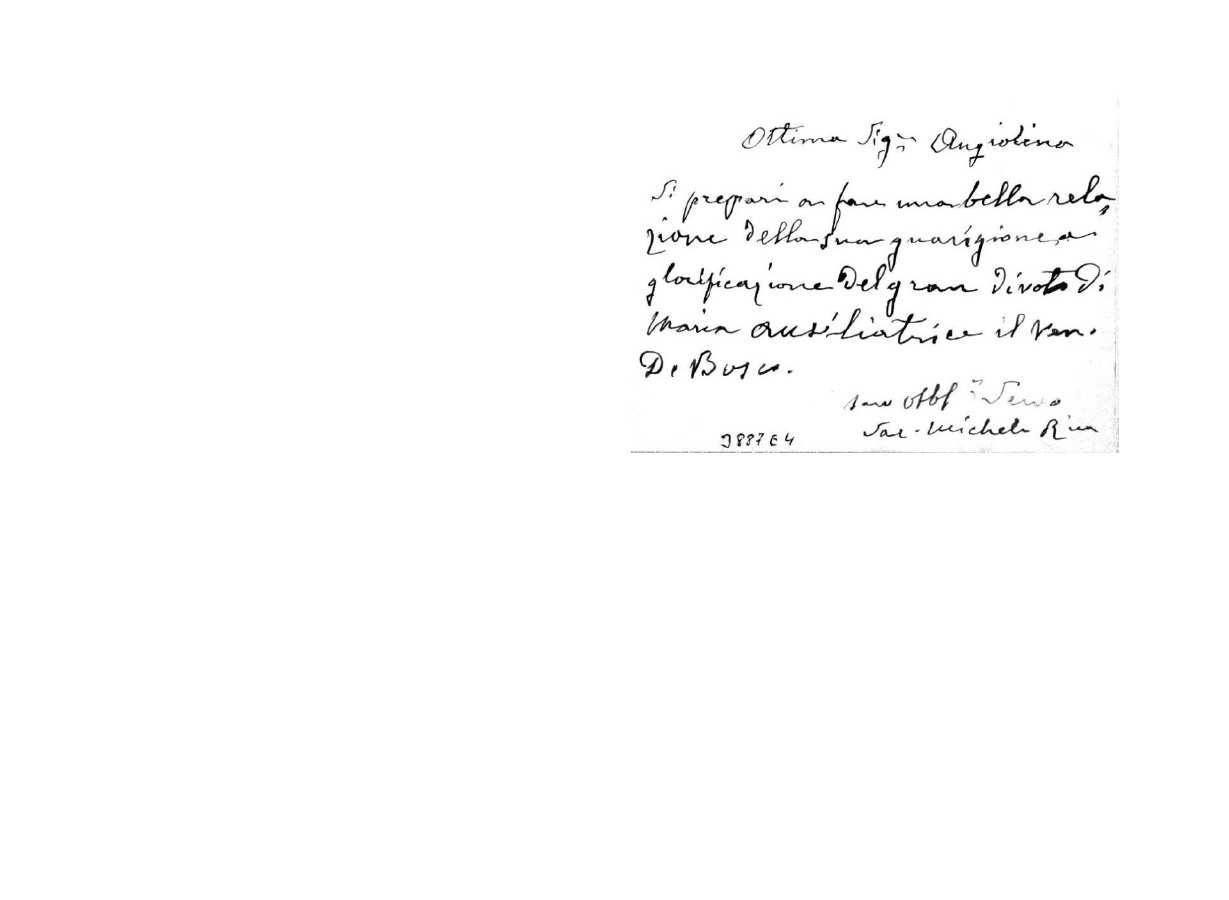 Ottima Sigra Angiolina
Si prepari a fare una bella rela-
zione della sua guarigione, a
glorificazione del gran divoto di
Maria Ausiliatrice il Ven.
D. Bosco.
suo obbl mo Servo
Sac. Michele Rua
3887E4